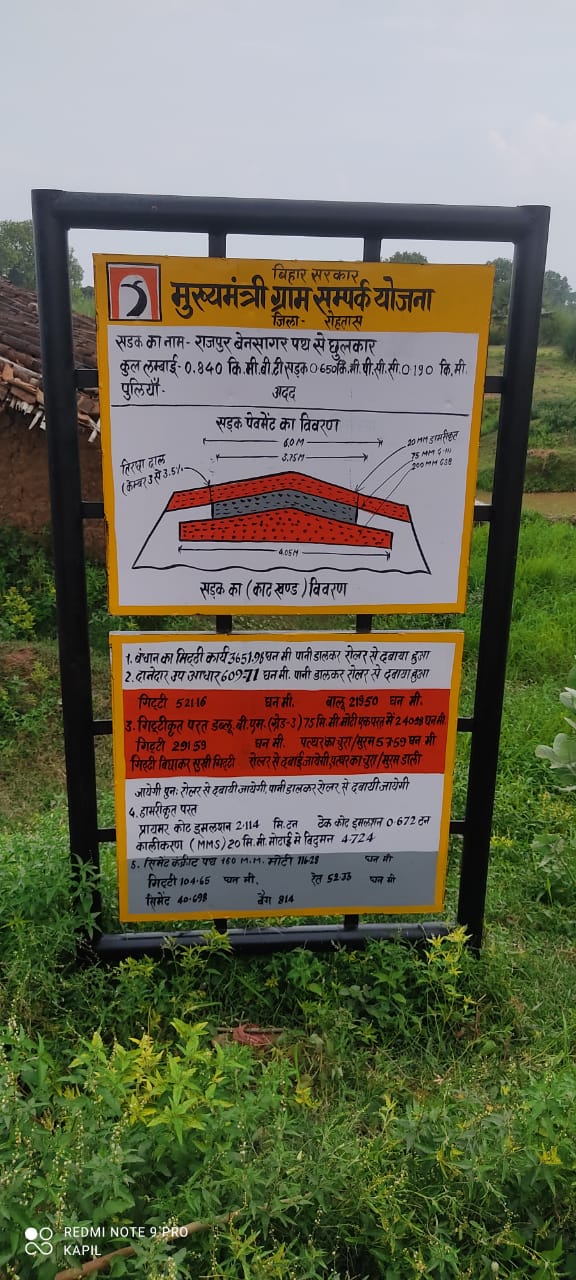 बिहार सरकार
मुख्यमंत्री ग्राम सम्पर्क योजना
जिला- रोहतास
सड़क का नाम- राजपुर बेनसागर पथ से छुलकार
कुल लम्बाई- 0.840 कि.मी.बी.टी सड़क 0.650 कि.मी. पी.सी.सी. 0.190 कि.मी.
पुलियाँ- अदद
सड़क पेवमेंट का विवरण
6.0 M
3.75 M
20 MM डामरीकृत
75 MM G-III
200 MM GSB
तिरछा ढाल
(केम्बर 3 से 3.5%
4.05 M
सड़क का (काट खण्ड) विवरण
1. बंधान का मिट्टी कार्य 3651.96 घन मी पानी डालकर रोलर से दबाया हुआ
2. दानेदार उप आधार 609.71 घन मी. पानी डालकर रोलर से दबाया हुआ
गिट्टी 521.16 घन मी. बालू 219.50 घन मी.
3. गिट्टीकृत परत डब्लू.बी.एम.(ग्रेड-3) 75 मि.मी मोटी एक परत में 240.99 घन मी.
गिट्टी 291.59 घन मी. पत्थर का चुरा/मुरम 57.59 घन मी
गिट्टी बिछाकर सुखी गिट्टी रोलर से दबाई जायेगी, पत्थर का चुरा/मुरम डाली
जायेगी पुनः रोलर से दबायी जायेगी, पानी डालकर रोलर से दबायी जायेगी
4. डामरीकृत परत
प्रायमर कोट इमलशन 2.114 मि.टन टेक कोट इमलशन 0.672 टन
कालीकरण (MMS) 20 मि.मी. मोटाई में विटुमन 4.724
5. सिमेंट कंक्रीट पथ 160 M.M. मोटी 116.28 घन मी
गिट्टी 104.65 घन मी. रेत 52.33 घन मी
सिमेंट 40.698 बैग 814
REDMI NOTE 9 PRO
KAPIL